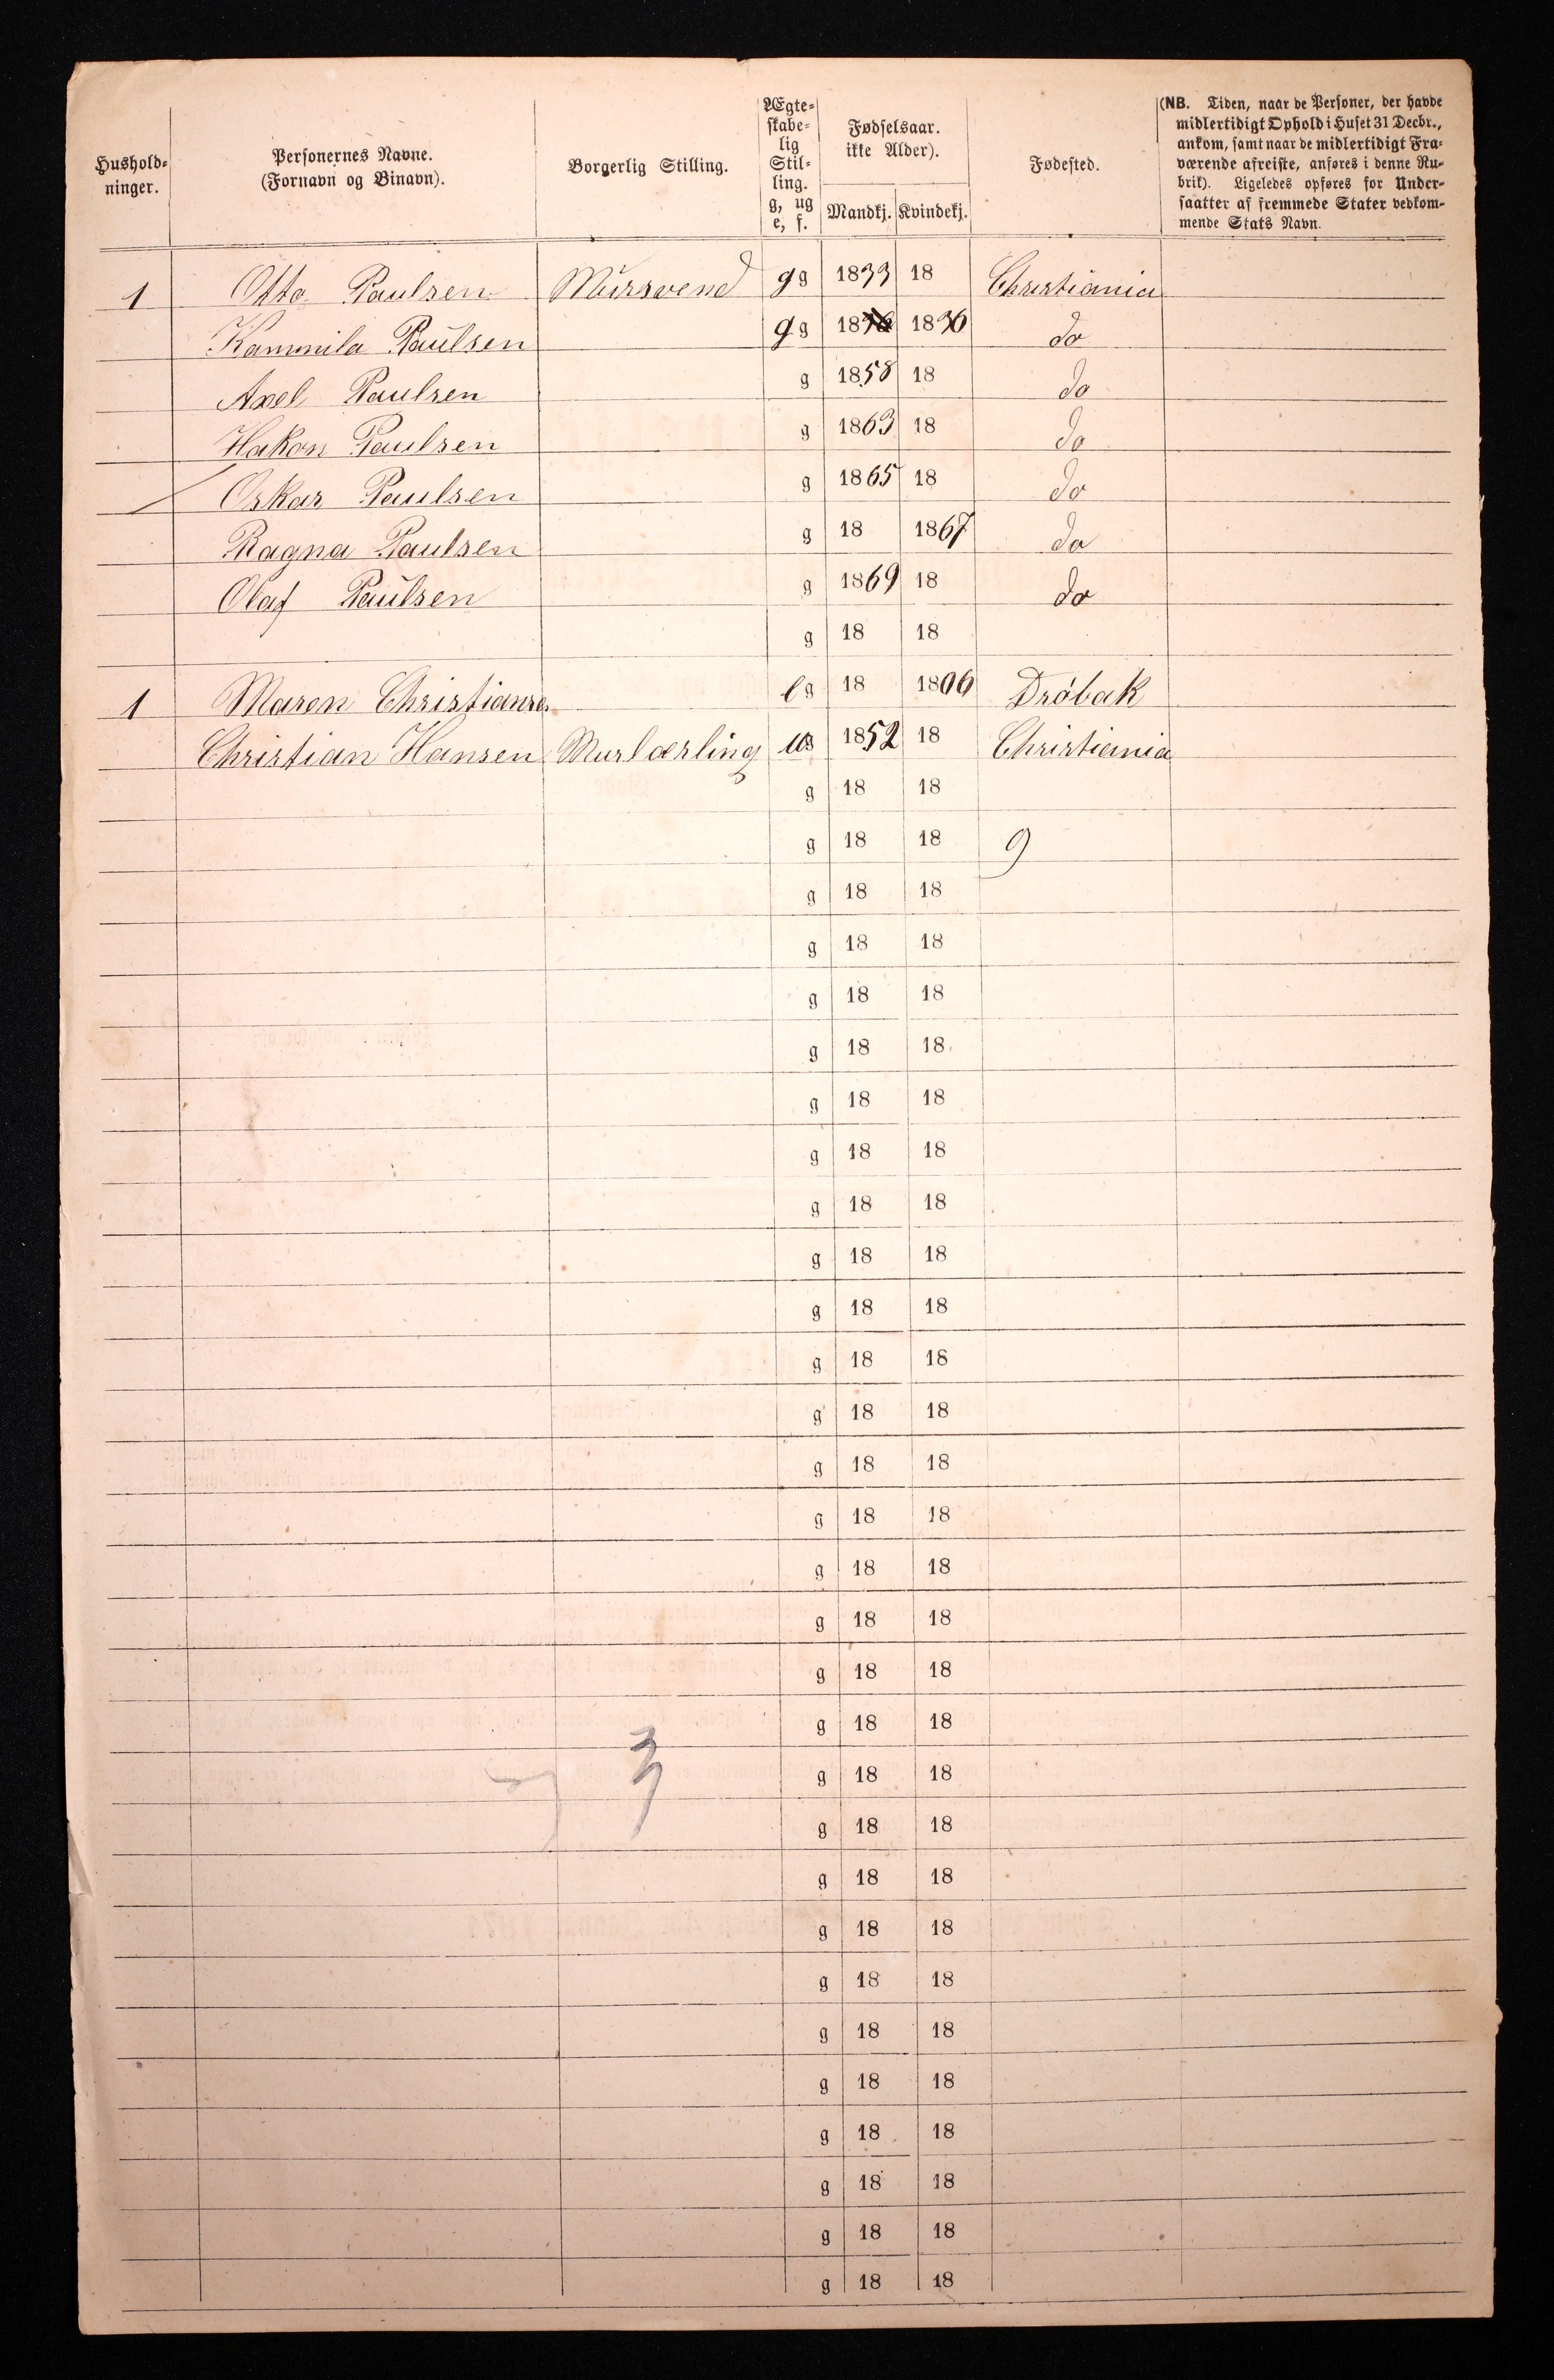 Hushold-
ninger.
Personernes Navne.
(Fornavn og Binavn).
Borgerlig Stilling.
Ægte-
skabe-
lig
Stil-
ling.
g, ug
e, f.
Fødselsaar.
ikke Alder).
Mandkj. Kvindekj.
Fødested.
(NB. Tiden, naar de Personer, der havde
midlertidigt Ophold i Huset 31 Decbr.,
ankom, samt naar de midlertidigt Fra-
værende afreiste, anføres i denne Ru-
brik). Ligeledes opføres for Under-
saatter af fremmede Stater vedkom-
mende Stats Navn.
1 Otto Paulsen Mursvend g g 1833 18 Christiania
Kammila Paulsen g g 18 1836 do
Axel Paulsen g 1858 18 do
Hakon Paulsen g 1863 18 do
Oskar Paulsen g 1865 18 do
Ragna Paulsen g 18 1867 do
Olaf Paulsen g 1869 18 do
g 18 18
1 Maren Christiansen e g 18 1806 Dröbak
Christian Hansen Murlærling u g 1852 18 Christiania
g 18 18
g 18 18 9
g 18 18
g 18 18
g 18 18
g 18 18
g 18 18
g 18 18
g 18 18
g 18 18
g 18 18
g 18 18
g 18 18
g 18 18
g 18 18
g 18 18
g 18 18
g 18 18
g 18 18
3 g 18 18
g 18 18
g 18 18
g 18 18
g 18 18
g 18 18
g 18 18
g 18 18
g 18 18
g 18 18
g 18 18